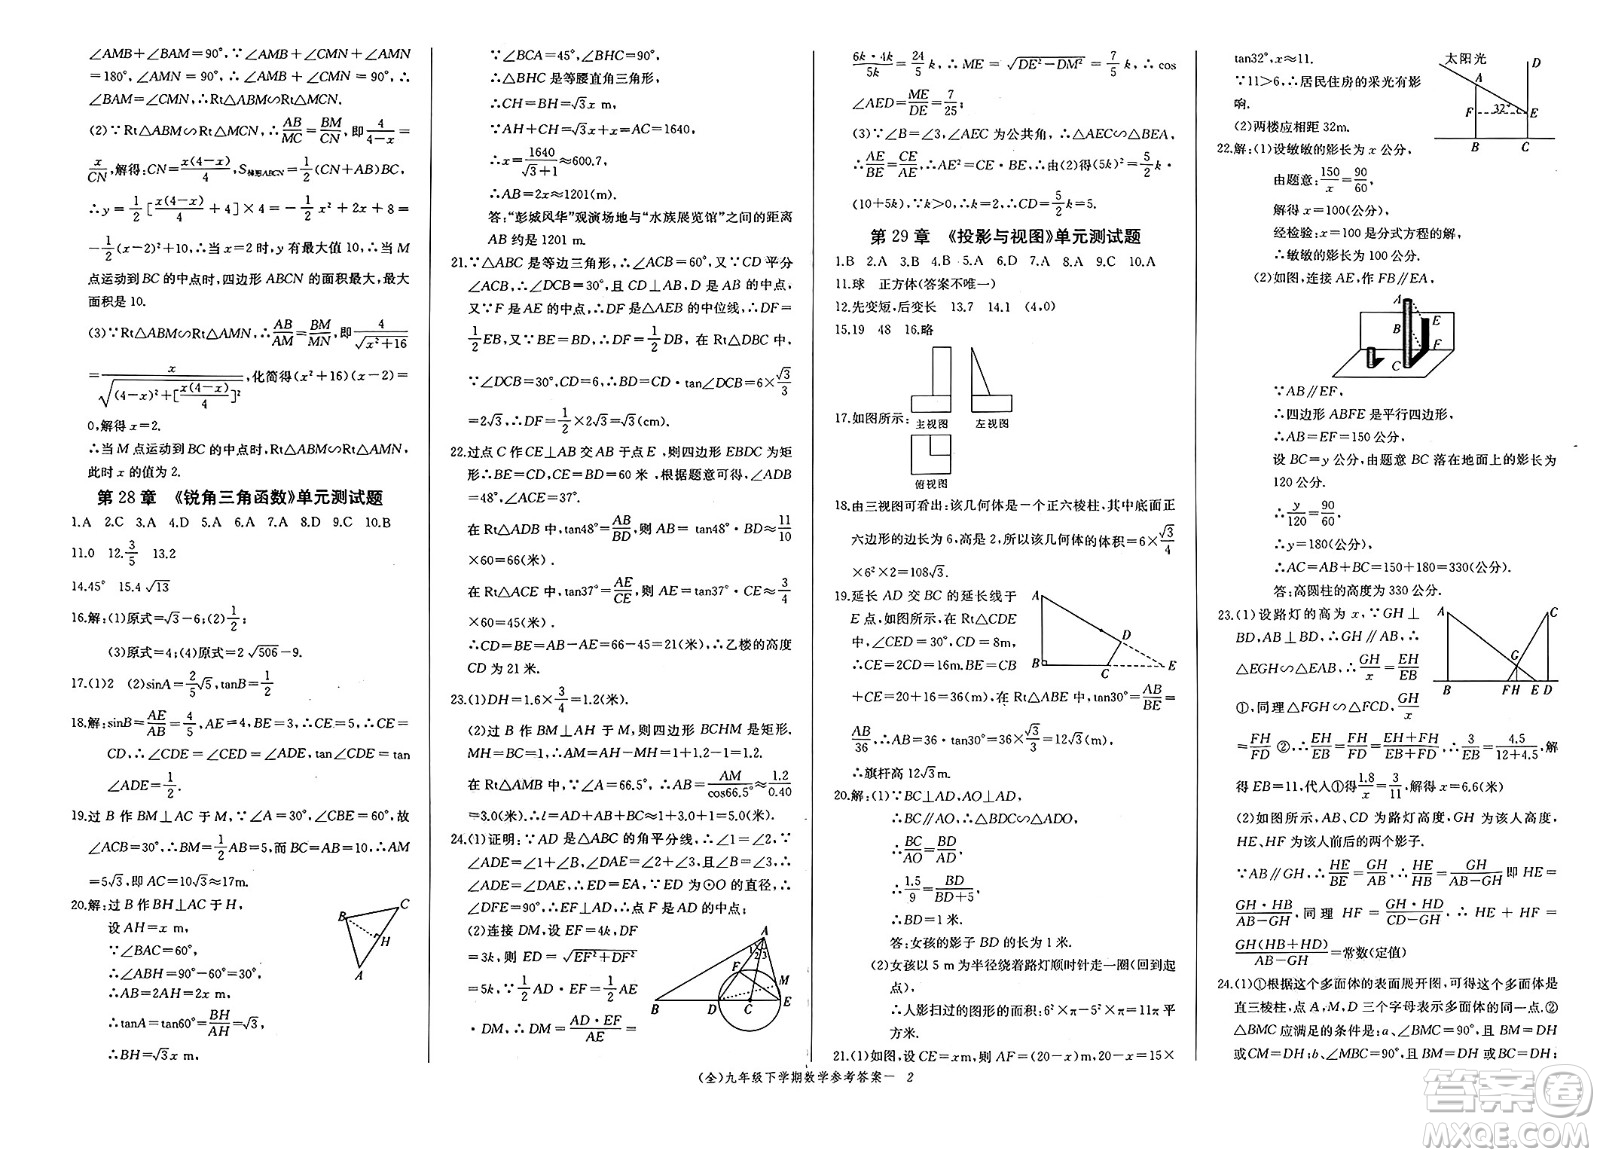 ∠AMB+∠BAM=90°,∵∠AMB+∠CMN+∠AMN
=180°,∠AMN=90°,∴∠AMB+∠CMN=90°,∴
∠BAM=∠CMN,∴Rt△ABM∽Rt△MCN.
(2)∵Rt△ABM∽Rt△MCN,∴AB/MC=BM/CN,即4/(4-x)=
x/CN,解得:CN=x(4-x)/4,S梯形ABCN=1/2(CN+AB)BC,
∴y=1/2[x(4-x)/4+4]×4=-1/2x²+2x+8=
-1/2(x-2)²+10,∴当x=2时,y有最大值10.∴当M
点运动到BC的中点时,四边形ABCN的面积最大,最大
面积是10.
(3)∵Rt△ABM∽Rt△AMN,∴AB/AM=BM/MN,即4/√(x²+16)
=x/√((4-x)²+[x(4-x)/4]²),化简得(x²+16)(x-2)=
0,解得x=2.
∴当M点运动到BC的中点时,Rt△ABM∽Rt△AMN,
此时x的值为2.
第28章 《锐角三角函数》单元测试题
1.A 2.C 3.A 4.D 5.A 6.A 7.A 8.D 9.C 10.B
11.0 12.3/5 13.2
14.45° 15.4√13
16.解:(1)原式=√3-6;(2)1/2;
(3)原式=4;(4)原式=2√506-9.
17.(1)2 (2)sinA=2/5√5,tanB=1/2
18.解:sinB=AE/AB=4/5,AE=4,BE=3,∴CE=5=
CD,∴∠CDE=∠CED=∠ADE,tan∠CDE=tan
∠ADE=1/2.
19.过B作BM⊥AC于M,∵∠A=30°,∠CBE=60°,故
∠ACB=30°,∴BM=1/2AB=5,而BC=AB=10,∴AM
=5√3,即AC=10√3≈17m.
20.解:过B作BH⊥AC于H,
设AH=x m,
∵∠BAC=60°,
∴∠ABH=90°-60°=30°,
∴AB=2AH=2x m,
∴tanA=tan60°=BH/AH=√3,
∴BH=√3x m,
B
C
H
A
∵∠BCA=45°,∠BHC=90°,
∴△BHC是等腰直角三角形,
∴CH=BH=√3x m,
∵AH+CH=AC=1640,
∴x=1640/(√3+1)≈600.7,
∴AB=2x≈1201(m).
答:“彭城风华”观演场地与“水族展览馆”之间的距离
AB约是1201 m.
21.∵△ABC是等边三角形,∴∠ACB=60°,又∵CD平分
∠ACB,∴∠DCB=30°,且CD⊥AB,D为AB的中点,
∵F是AE的中点,∴DF是△ABE的中位线,∴DF=
1/2EB,又∵BE=BD,∴DF=1/2DB,在Rt△DBC中,
∵∠DCB=30°,CD=6,∴DB=CD·tan∠DCB=6×√3/3
=2√3,∴DF=1/2×2√3=√3(cm).
22.过点C作CE⊥AB交AB于点E,则四边形EBDC为矩
形∴BE=CD,CE=BD=60米,根据题意可得,∠ADB
=48°,∠ACE=37°,
在Rt△ADB中,tan48°=AB/BD,则AB=tan48°·BD≈11/10
×60=66(米).
在Rt△ACE中,tan37°=AE/CE,则AE=tan37°·CE≈3/4
×60=45(米).
∴CD=BE=AB-AE=66-45=21(米),∴乙楼的高度
CD为21米.
23.(1)DH=1.6×3/4=1.2(米).
(2)过B作BM⊥AH于M,则四边形BCHM是矩形.
MH=BC=1,∴AM=AH-MH=1+1.2-1=1.2.在
Rt△AMB中,∵∠A=66.5°,∴AB=AM/cos66.5°≈1.2/0.40
=3.0(米),∴l=AD+AB+BC≈1+3.0+1=5.0(米).
24.(1)证明:∵AD是△ABC的角平分线,∴∠1=∠2,∵
∠ADE=∠1+∠B,∠DAE=∠2+∠3,且∠B=∠3,∴
∠ADE=∠DAE,∴ED=EA,∵ED为⊙O的直径,∴
∠DFE=90°,∴EF⊥AD,∴点F是AD的中点;
(2)连接DM,设EF=4k,DF
=3k,则ED=√(EF²+DF²)
=5k,∵1/2AD·EF=1/2AE
·DM,∴DM=AD·EF/AE=
A
1
2
3
F
M
B
D
C
E
6k·4k/5k=24/5k,∴ME=√(DE²-DM²)=7/5k,∴cos
∠AED=ME/DE=7/25;
(3)∵∠B=∠3,∠AEC为公共角,∴△AEC∽△BEA,
∴AE/BE=CE/AE,∴AE²=CE·BE,∴由(2)得(5k)²=5/2k·
(10+5k),∵k>0,∴k=2,∴CD=5/2k=5
第29章 《投影与视图》单元测试题
1.B 2.A 3.B 4.B 5.A 6.D 7.A 8.A 9.C 10.A
11.球 正方体(答案不唯一)
12.先变短,后变长 13.7 14.1 (4,0)
15.19 48 16.略
17.如图所示:
主视图
左视图
俯视图
18.由三视图可看出:该几何体是一个正六棱柱,其中底面正
六边形的边长为6,高是2,所以该几何体的体积=6×√3/4
×6²×2=108√3.
19.延长AD交BC的延长线于
E点,如图所示,在Rt△CDE
中,∠CED=30°,CD=8m,
∴CE=2CD=16m.BE=CB
A
D
B
C
E
+CE=20+16=36(m),在Rt△ABE中,tan30°=AB/BE=
AB/36,∴AB=36·tan30°=36×√3/3=12√3(m),
∴旗杆高12√3m.
20.解:(1)∵BC⊥AD,AO⊥AD,
∴BC∥AO,∴△BDC∽△ADO,
∴BC/AO=BD/AD.
∴1.5/9=BD/(BD+5),
∴BD=1米.
答:女孩的影子BD的长为1米.
(2)女孩以5 m为半径绕着路灯顺时针走一圈(回到起
点),
∴人影扫过的图形的面积:6²×π-5²×π=11π平
方米.
21.(1)如图,设CE=xm,则AF=(20-x)m,20-x=15×
tan32°,x≈11.
∵11>6,∴居民住房的采光有影
响.
(2)两楼应相距32m.
太阳光
A
D
F
32°
E
B
C
22.解:(1)设敏敏的影长为x公分,
由题意:150/x=90/60,
解得x=100(公分),
经检验:x=100是分式方程的解,
∴敏敏的影长为100公分.
(2)如图,连接AE,作FB∥EA,
A
B
E
F
C
∵AB∥EF,
∴四边形ABFE是平行四边形,
∴AB=EF=150公分,
设BC=y公分,由题意BC落在地面上的影长为
120公分.
∴y/120=90/60,
∴y=180(公分),
∴AC=AB+BC=150+180=330(公分),
答:高圆柱的高度为330公分.
23.(1)设路灯的高为x,∵GH⊥
BD,AB⊥BD,∴GH∥AB,∴
△EGH∽△EAB,∴GH/x=EH/EB
①,同理△FGH∽△FCD,GH/x
A
C
G
B
FH
E D
=FH/FD ②,∴EH/EB=FH/FD=(EH+FH)/(EB+FD),∴3/EB=4.5/(12+4.5),解
得EB=11,代人①得1.8/x=3/11,解得x=6.6(米)
(2)如图所示,AB、CD为路灯高度,GH为该人高度,
HE、HF为该人前后的两个影子.
∵AB∥GH,∴HE/BE=GH/AB,∴HE/HB=GH/(AB-GH)即HE=
GH·HB/(AB-GH),同理HF=GH·HD/(CD-GH),∴HE+HF=
GH(HB+HD)/(AB-GH)=常数(定值)
24.(1)①根据这个多面体的表面展开图,可得这个多面体是
直三棱柱,点A,M,D三个字母表示多面体的同一点.②
△BMC应满足的条件是:a、∠BMC=90°,且BM=DH
或CM=DH;b、∠MBC=90°,且BM=DH或BC=DH
(全)九年级下学期数学参考答案一 2
答案卷
MXQE.COM